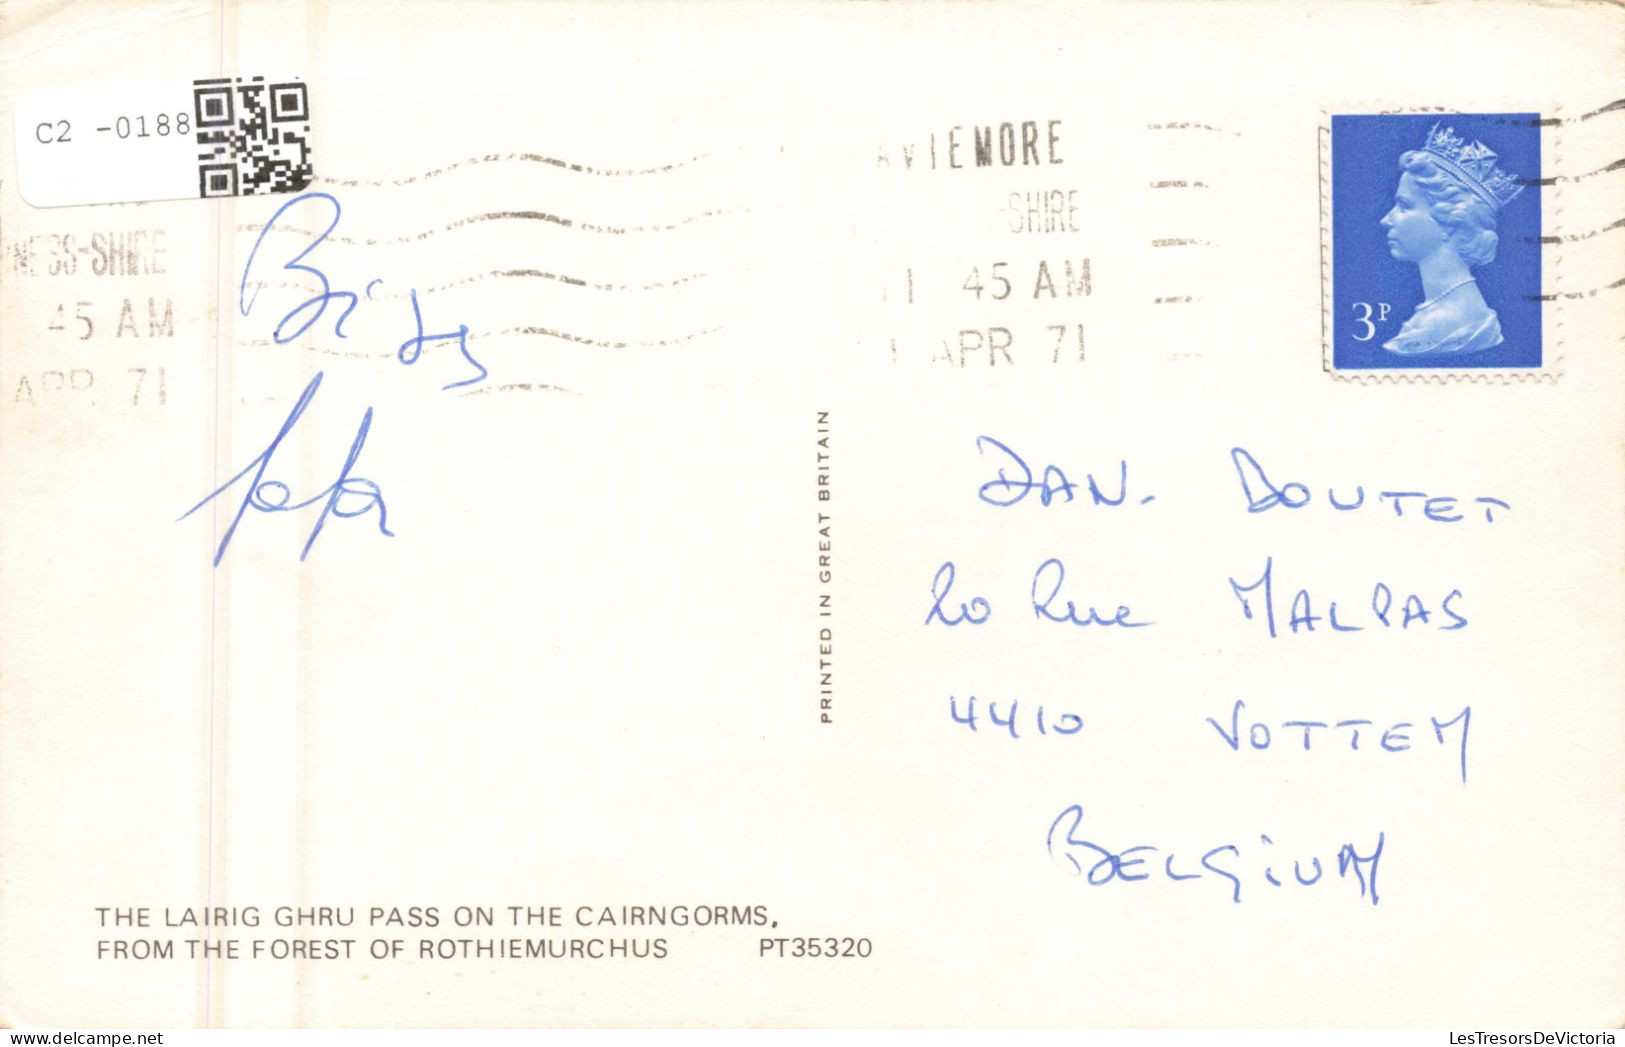 C2 -0188
AVIEMORE
NESS-SHIRE
-SHIRE
45 AM
1 45 AM
APR 71
1 APR 71
3P
papa
PRINTED IN GREAT BRITAIN
DAN. BOUTET
20 Rue MALPAS
4410 VOTTEM
BELGIUM
THE LAIRIG GHRU PASS ON THE CAIRNGORMS,
FROM THE FOREST OF ROTHIEMURCHUS PT35320
LesTresorsDeVictoria